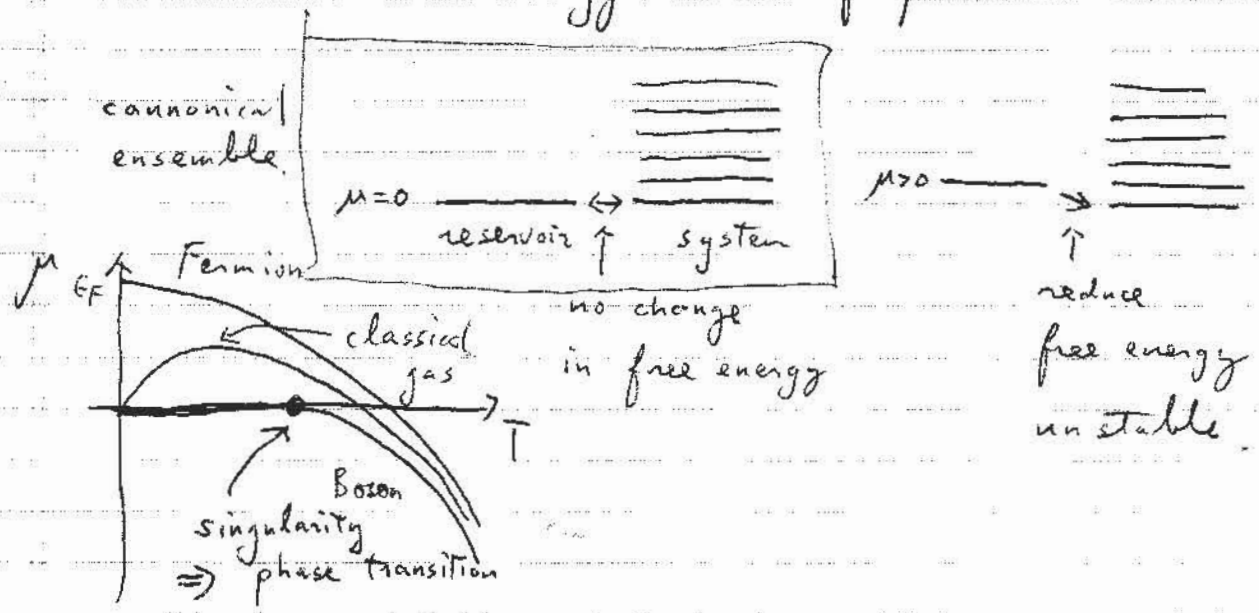 cannonical
ensemble
μ=0
reservoir
system
μ>0
no change
in free energy
reduce
free energy
unstable.
μ
EF
Fermion
classical
gas
T
Boson
singularity
⇒ phase transition